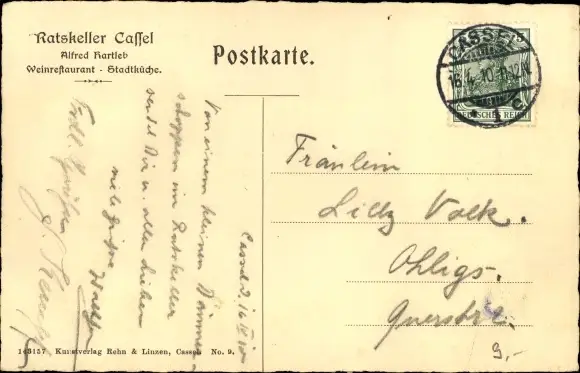 Ratskeller Cassel
Alfred Hartleb
Weinrestaurant - Stadtküche.
Postkarte.
CASSEL
16.4.10.
1 C.
DEUTSCHES REICH
Cassel d. 16. IV. 10
Von einem kleinen Dämmer-
schoppen im Ratskeller
sendet Dir u. allen Lieben
viele Grüße
Walther
Frdl. Grüße
Fräulein
Lilly Volk.
Ohligs.
Querstr.
9,-
146157 Kunstverlag Rehn & Linzen, Cassel No. 9.